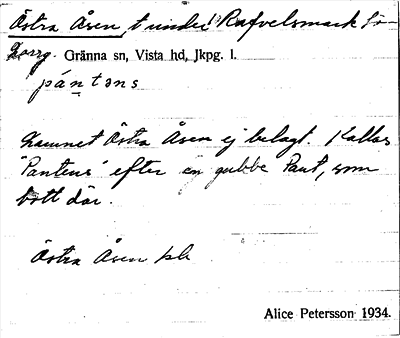 Östra Åsen, t under Rafvelsmark Sö-
Gränna sn, Vista hd, Jkpg. l.
pántəns
Namnet Östra Åsen ej belagt. Kallas
"Pantens" efter en gubbe Pant, som
bott där.
Östra Åsen
Alice Petersson 1934.